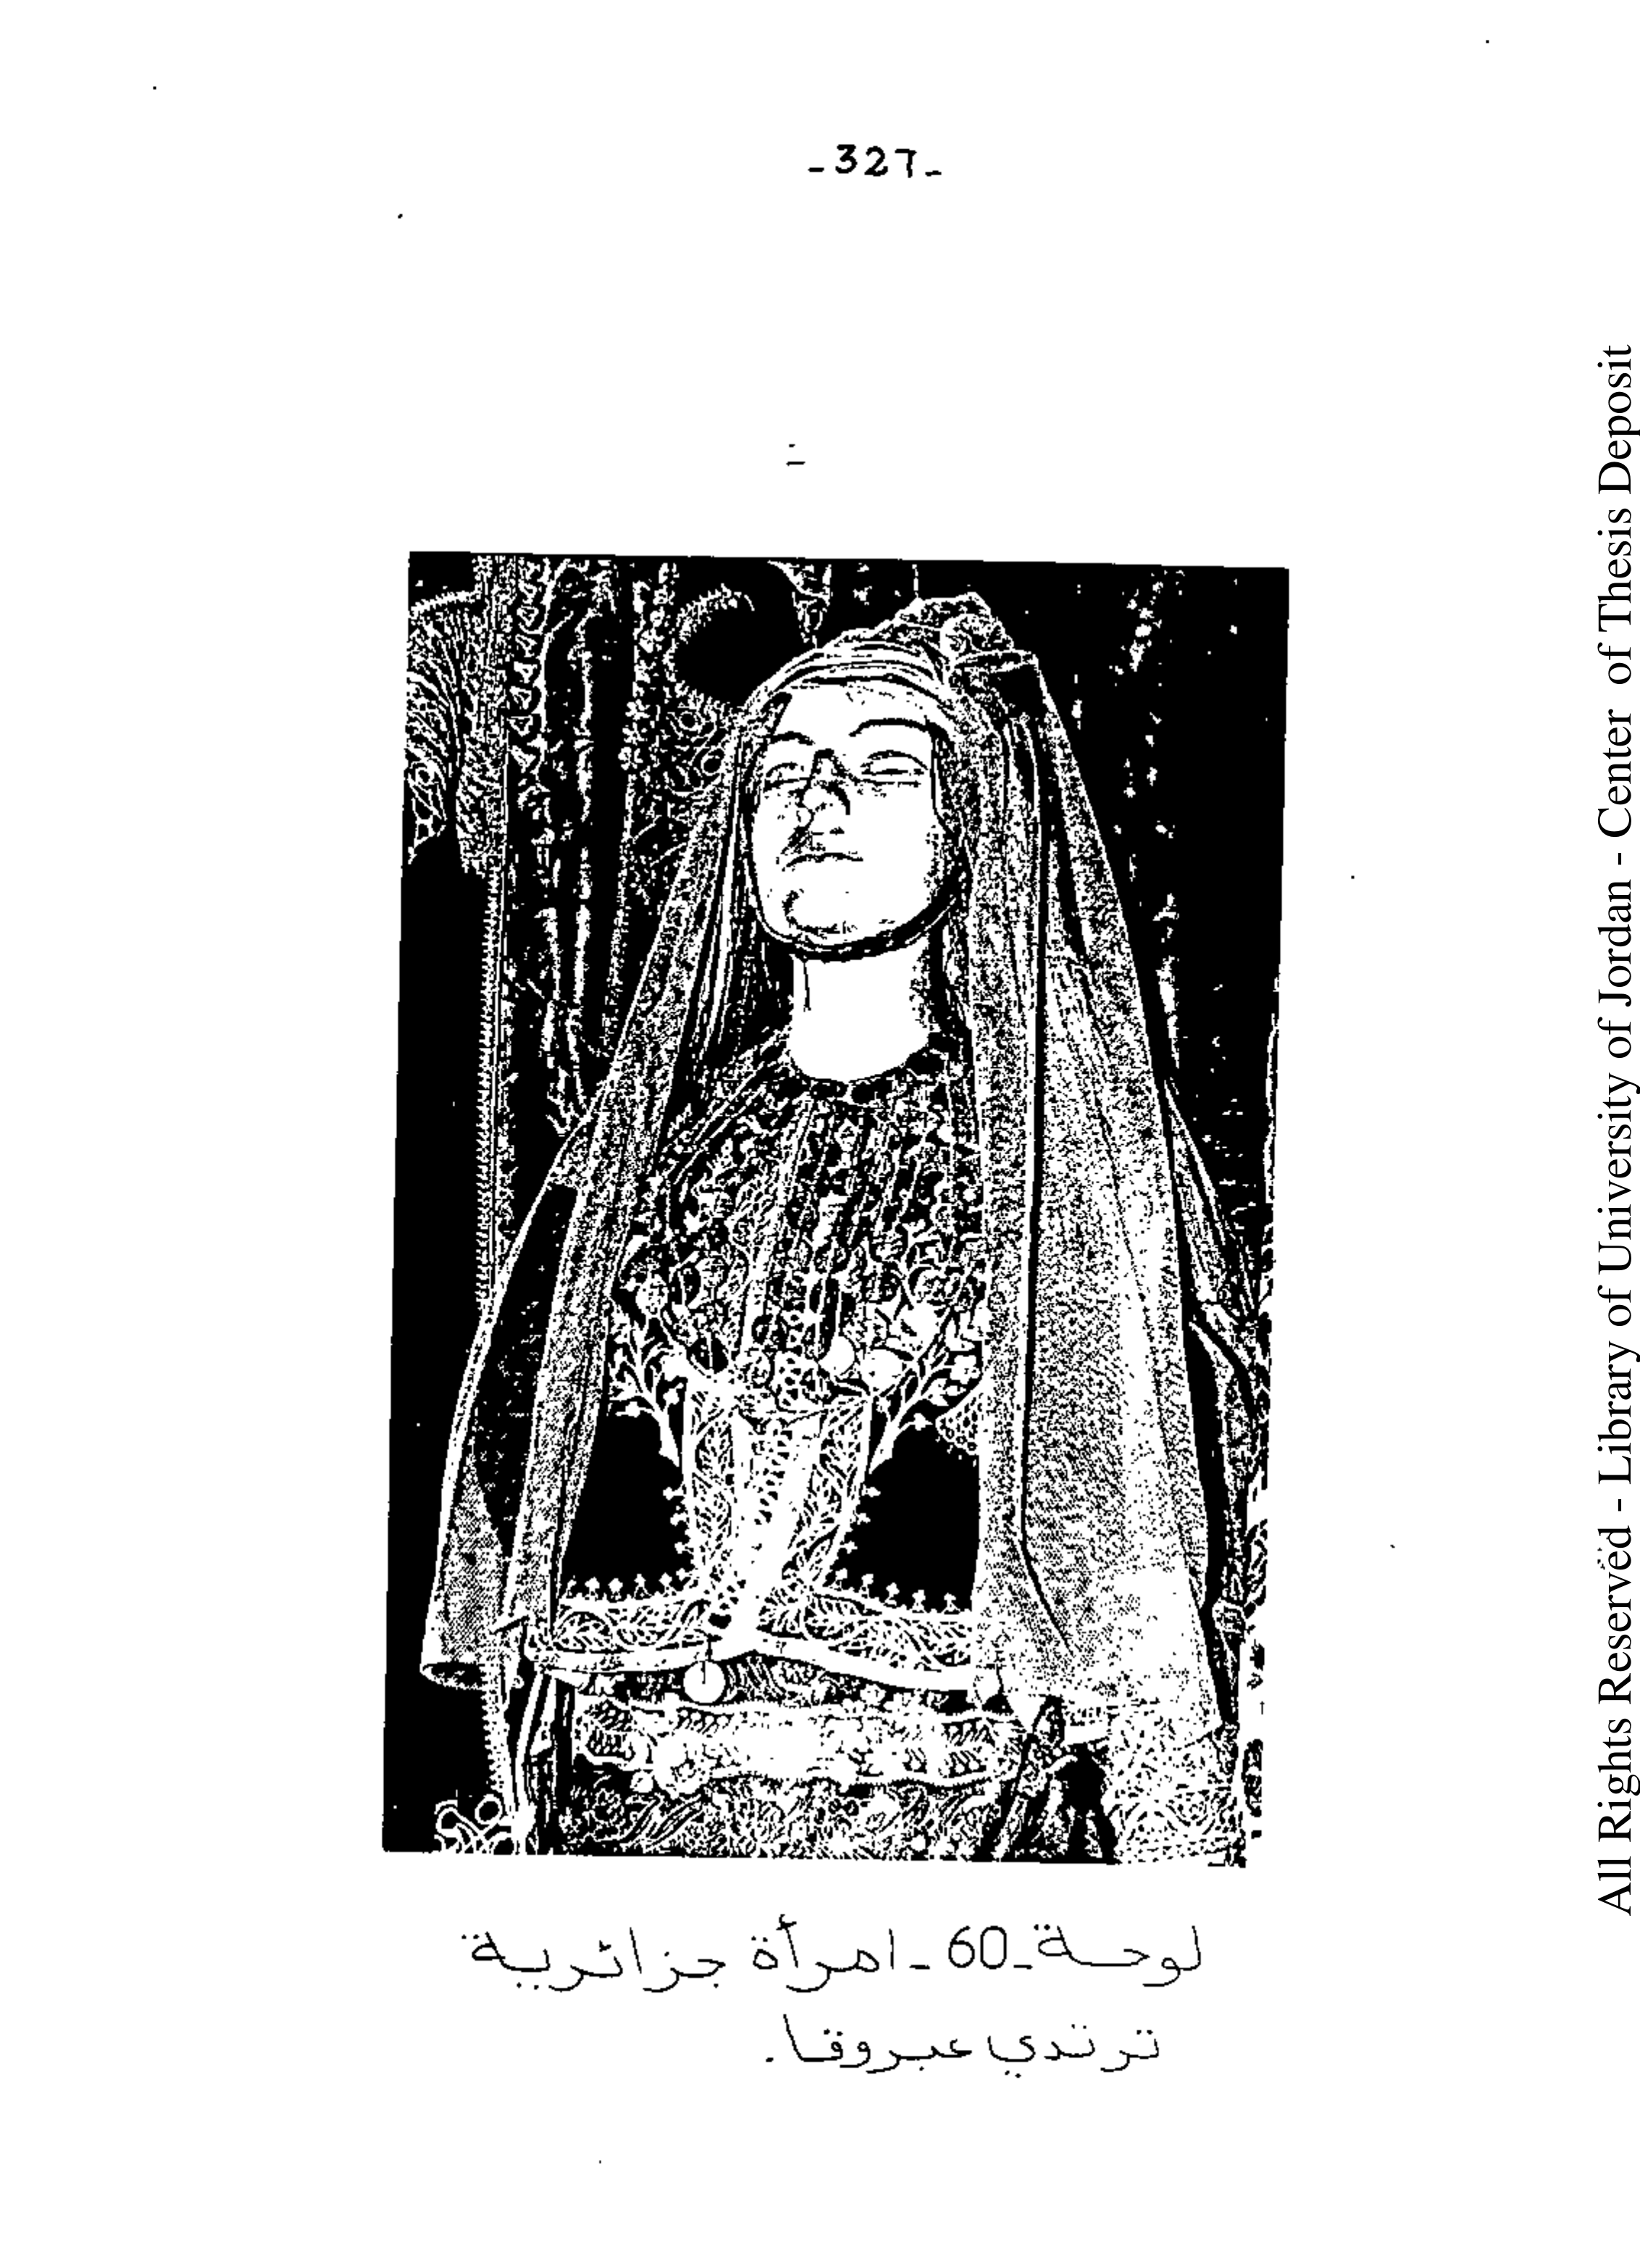 -327-
لوحة-60-امرأة جزائرية
ترتدي عبروقا.
All Rights Reserved - Library of University of Jordan - Center of Thesis Deposit